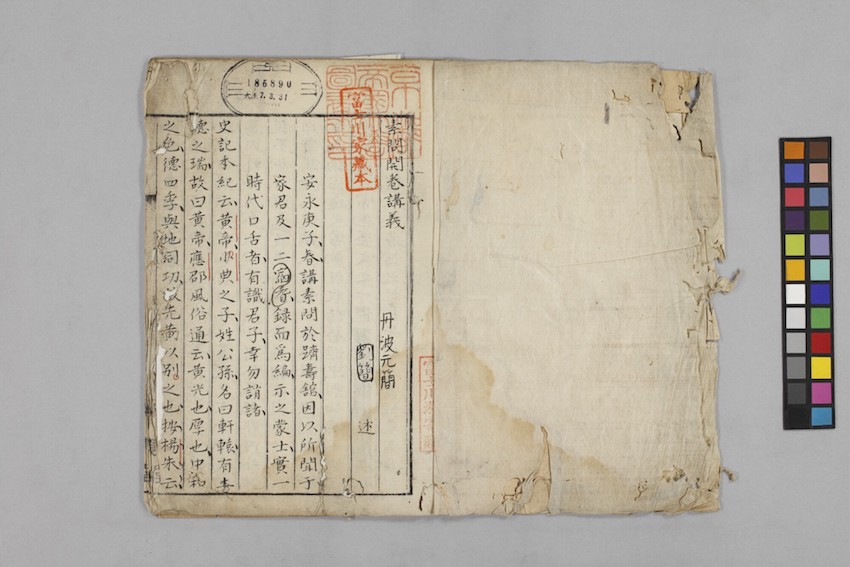 素問開卷講義
丹波元簡
劉簡 述
安永庚子春講素問於躋壽館因以所聞于
家君及一二宿耆錄而爲編示之蒙士實一
時代口舌者有識君子幸勿誚諸
史記本紀云黃帝少典之子姓公孫名曰軒轅有土
德之瑞故曰黃帝應邵風俗通云黃光也厚也中和
之色德四季與地同功故先黃以別之也按楊朱云
富士川家藏本
186890
大正7.3.31